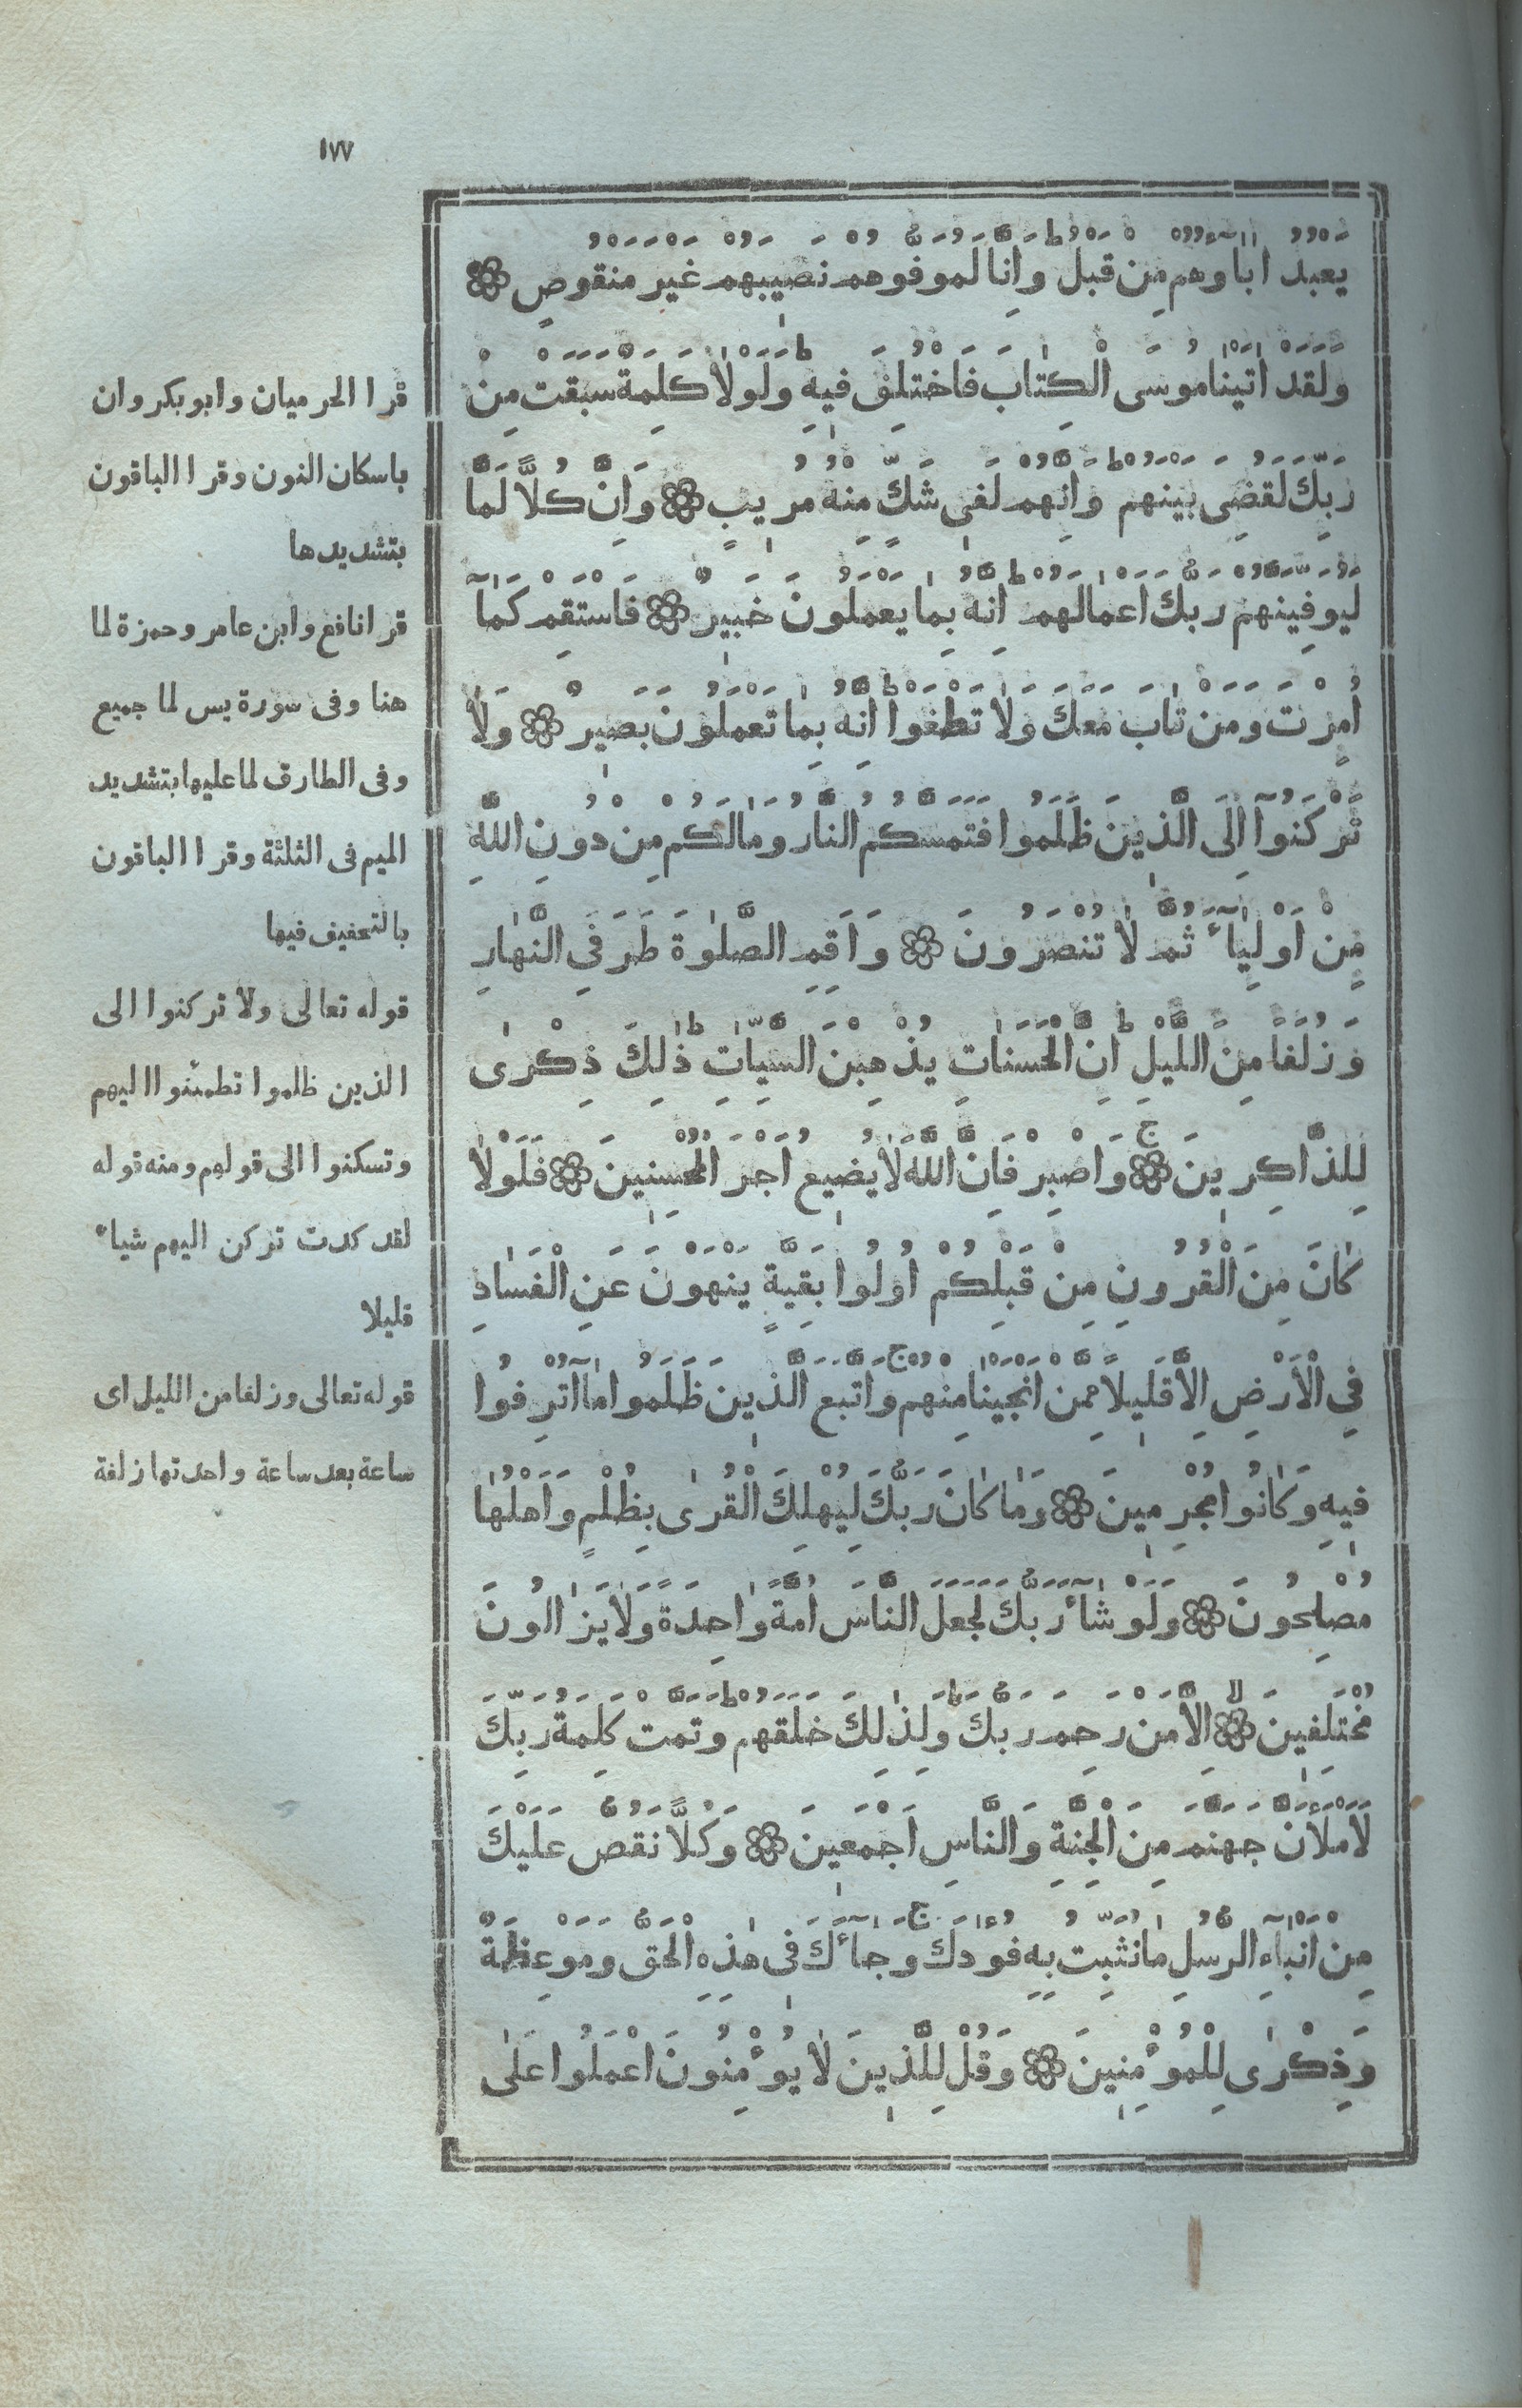 ١٧٧
يَعْبُدُ اٰبَاۤؤُهُمْ مِنْ قَبْلُ ؕ وَاِنَّا لَمُوَفُّوهُمْ نَصٖيبَهُمْ غَيْرَ مَنْقُوصٍ
وَلَقَدْ اٰتَيْنَا مُوسَى الْكِتَابَ فَاخْتُلِفَ فٖيهِ ؕ وَلَوْلَا كَلِمَةٌ سَبَقَتْ مِنْ
رَبِّكَ لَقُضِىَ بَيْنَهُمْ ؕ وَاِنَّهُمْ لَفٖى شَكٍّ مِنْهُ مُرٖيبٍ وَاِنَّ كُلًّا لَمَّا
لَيُوَفِّيَنَّهُمْ رَبُّكَ اَعْمَالَهُمْ ؕ اِنَّهُ بِمَا يَعْمَلُونَ خَبٖيرٌ فَاسْتَقِمْ كَمَاۤ
اُمِرْتَ وَمَنْ تَابَ مَعَكَ وَلَا تَطْغَوْا ؕ اِنَّهُ بِمَا تَعْمَلُونَ بَصٖيرٌ وَلَا
تَرْكَنُوۤا اِلَى الَّذٖينَ ظَلَمُوا فَتَمَسَّكُمُ النَّارُ وَمَا لَكُمْ مِنْ دُونِ اللّٰهِ
مِنْ اَوْلِيَاۤءَ ثُمَّ لَا تُنْصَرُونَ وَاَقِمِ الصَّلٰوةَ طَرَفَىِ النَّهَارِ
وَزُلَفًا مِنَ اللَّيْلِ ؕ اِنَّ الْحَسَنَاتِ يُذْهِبْنَ السَّيِّاٰتِ ؕ ذٰلِكَ ذِكْرٰى
لِلذَّاكِرٖينَ ۚ وَاصْبِرْ فَاِنَّ اللّٰهَ لَا يُضٖيعُ اَجْرَ الْمُحْسِنٖينَ فَلَوْلَا
كَانَ مِنَ الْقُرُونِ مِنْ قَبْلِكُمْ اُولُوا بَقِيَّةٍ يَنْهَوْنَ عَنِ الْفَسَادِ
فِى الْاَرْضِ اِلَّا قَلٖيلًا مِمَّنْ اَنْجَيْنَا مِنْهُمْ ۚ وَاتَّبَعَ الَّذٖينَ ظَلَمُوا مَاۤ اُتْرِفُوا
فٖيهِ وَكَانُوا مُجْرِمٖينَ وَمَا كَانَ رَبُّكَ لِيُهْلِكَ الْقُرٰى بِظُلْمٍ وَاَهْلُهَا
مُصْلِحُونَ وَلَوْ شَاۤءَ رَبُّكَ لَجَعَلَ النَّاسَ اُمَّةً وَاحِدَةً وَلَا يَزَالُونَ
مُخْتَلِفٖينَ ۙ اِلَّا مَنْ رَحِمَ رَبُّكَ ؕ وَلِذٰلِكَ خَلَقَهُمْ ؕ وَتَمَّتْ كَلِمَةُ رَبِّكَ
لَاَمْلَأَنَّ جَهَنَّمَ مِنَ الْجِنَّةِ وَالنَّاسِ اَجْمَعٖينَ وَكُلًّا نَقُصُّ عَلَيْكَ
مِنْ اَنْبَاۤءِ الرُّسُلِ مَا نُثَبِّتُ بِهِ فُؤَادَكَ ۚ وَجَاۤءَكَ فٖى هٰذِهِ الْحَقُّ وَمَوْعِظَةٌ
وَذِكْرٰى لِلْمُؤْمِنٖينَ وَقُلْ لِلَّذٖينَ لَا يُؤْمِنُونَ اعْمَلُوا عَلٰى
قرا الحرميان وابوبكر وان
باسكان النون وقرا الباقون
بتشديدها
قرا نافع وابن عامر وحمزة لما
هنا وفى سورة يس لما جميع
وفى الطارق لما عليها بتشديد
الميم فى الثلثة وقرا الباقون
بالتخفيف فيها
قوله تعالى ولا تركنوا الى
الذين ظلموا تطمئنوا اليهم
وتسكنوا الى قولهم ومنه قوله
لقد كدت تركن اليهم شياء
قليلا
قوله تعالى وزلفا من الليل اى
ساعة بعد ساعة واحدتها زلفة